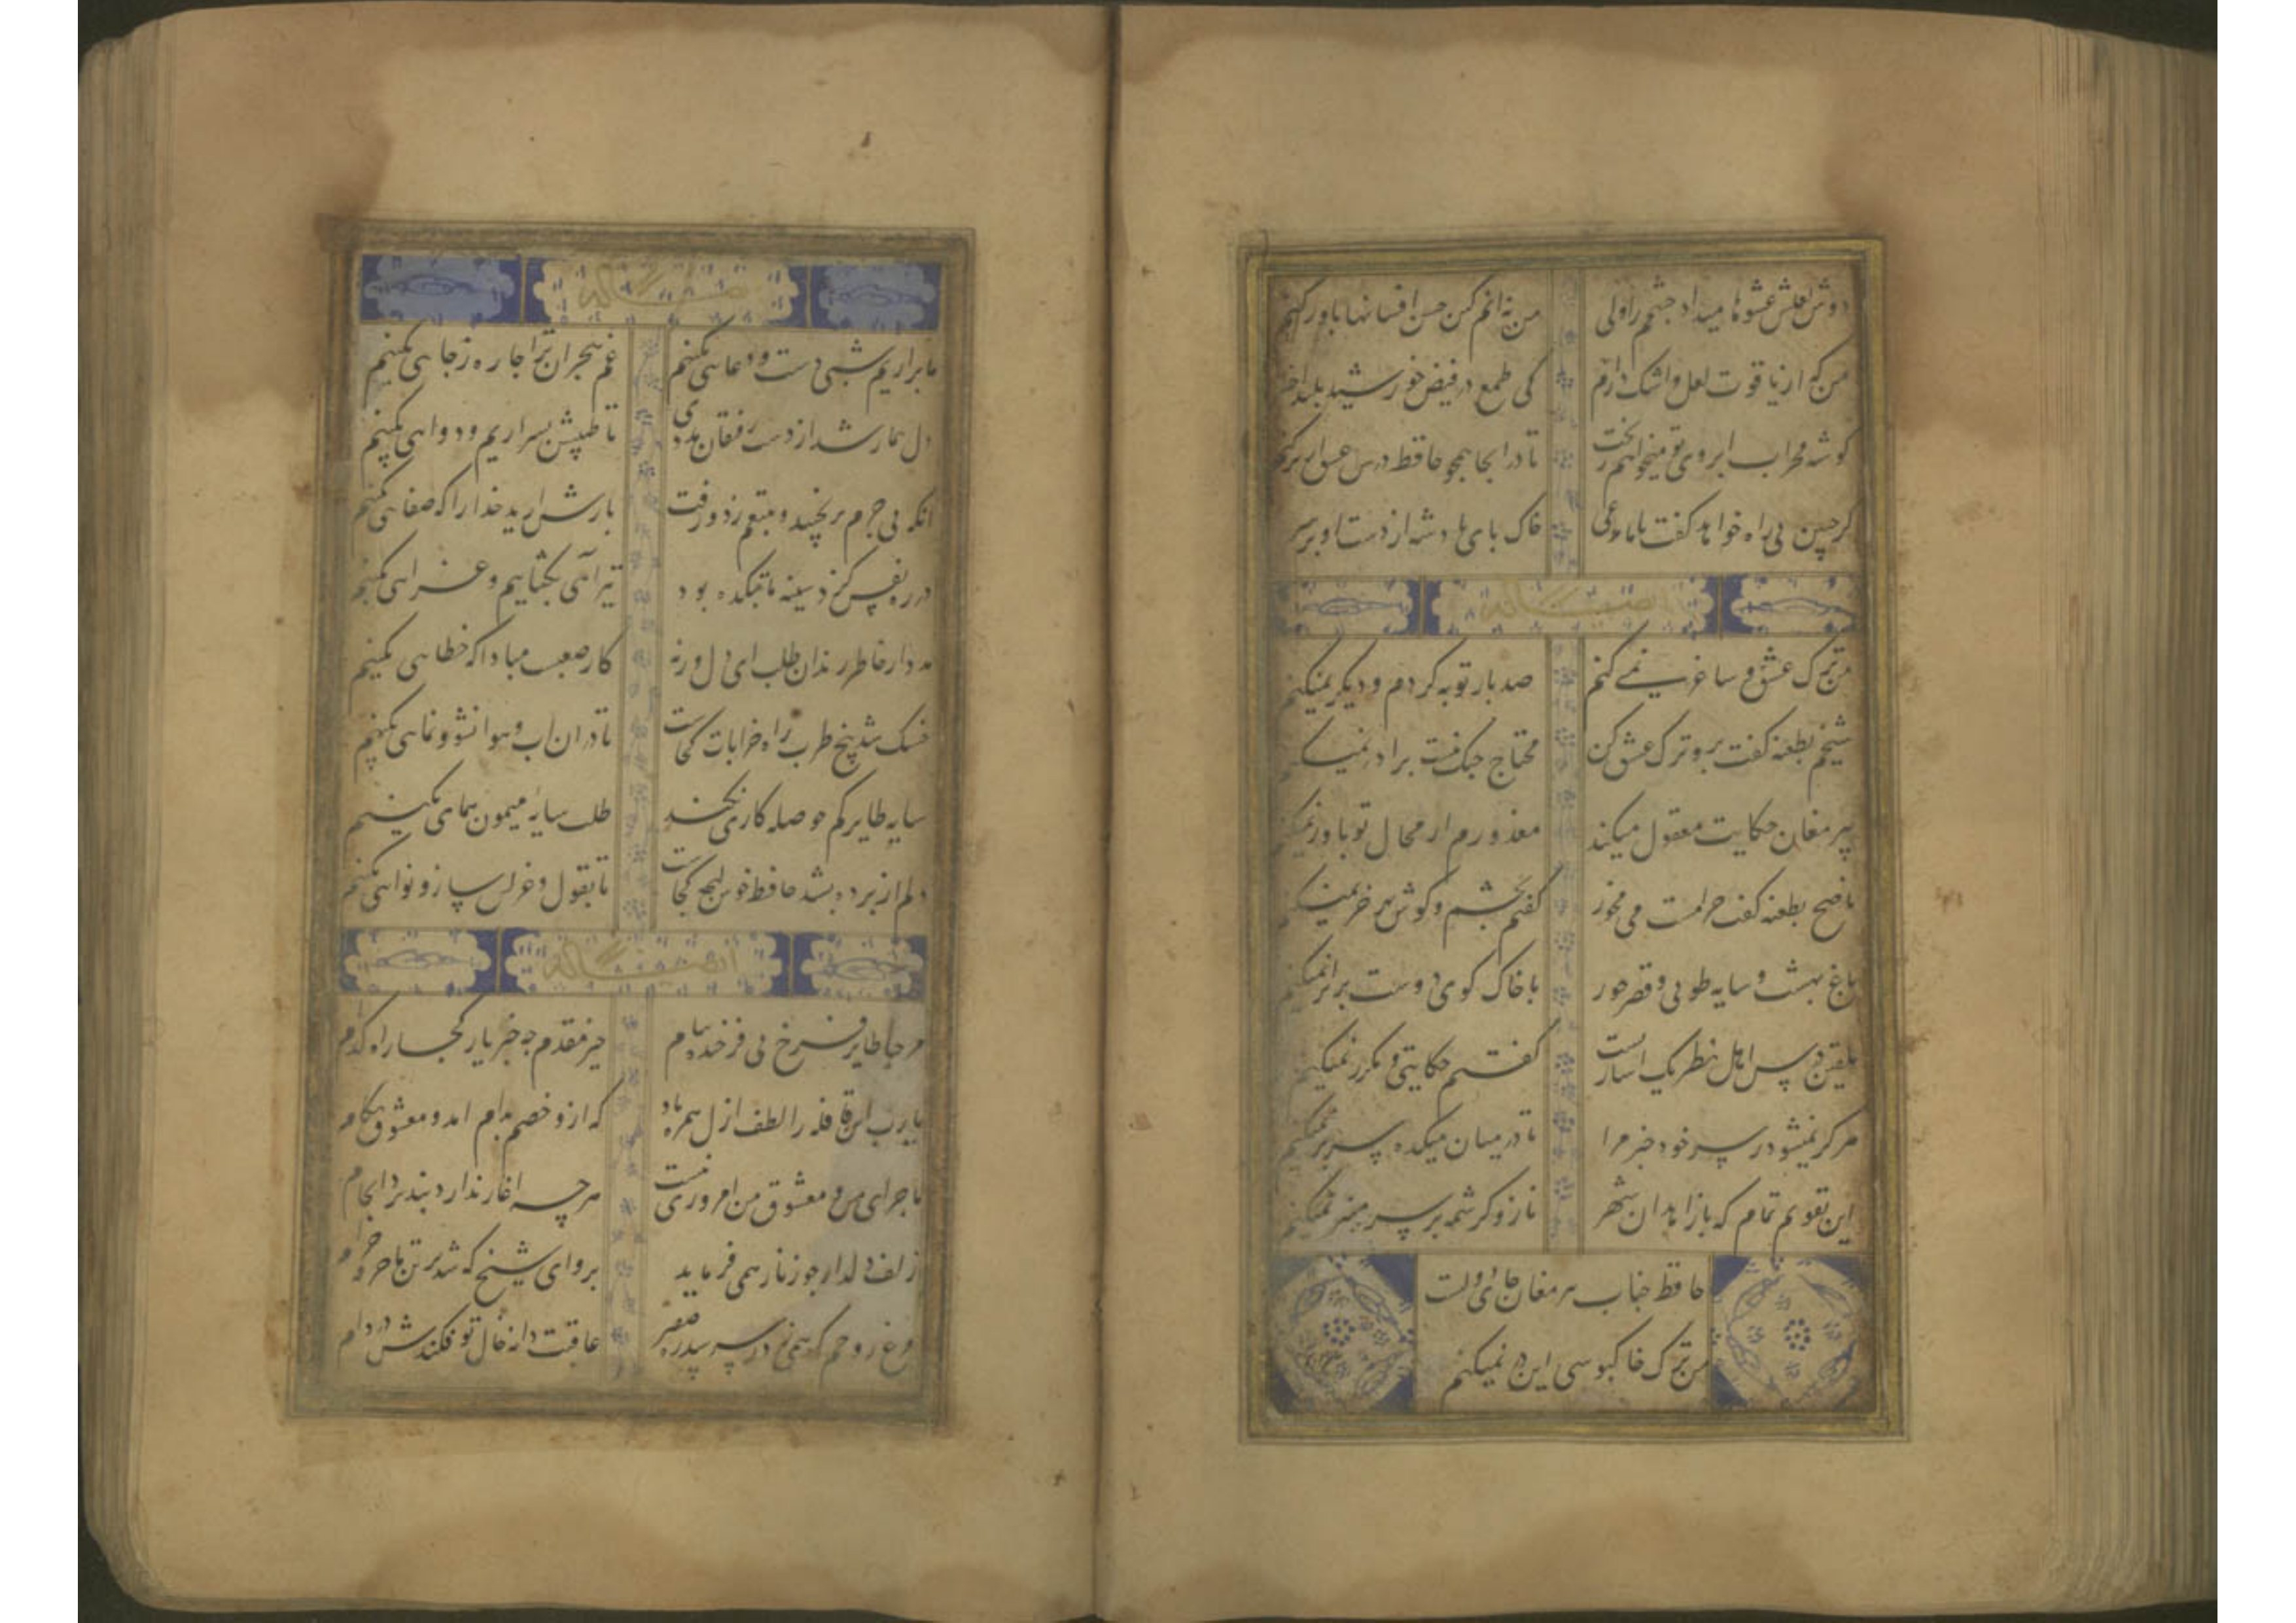 دوش لعلش عشوها میداد چشم را ولی من نه انم کز حسن افسانها باور کنم
من که از یاقوت لعل و اشک دارم کی طمع در فیض خورشید بلند
کوشه محراب ابروی تو میخواهم ز بخت تا در انجا همچو حافظ درس عشق از بر کنم
کر چنین بی راه خواهد کفت خاک پای پادشه از دست او بر سر
من ترک عشق و ساغر نمی کنم صد بار توبه کردم و دیکر نمیکنم
شیخم بطعنه کفت برو ترک عشق کن محتاج جنک نیست برادر نمیکنم
پیر مغان حکایت معقول میکند معذورم ار محال تو باور نمیکنم
ناصح بطعنه کفت حرامست می مخور کفتم بچشم و کوش بهر خر نمیکنم
باغ بهشت و سایه طوبی و قصر حور با خاک کوی دوست برابر نمیکنم
تلقین درس اهل نظر یک اشارتست کفتم حکایتی و مکرر نمیکنم
هرکز نمیشود ز سر خود خبر مرا تا در میان میکده سر بر نمیکنم
این تقویم تمام که با زاهدان شهر ناز و کرشمه بر سر منبر نمیکنم
حافظ جناب پیر مغان جای دولت
من ترک خاکبوسی این در نمیکنم
ما براریم شبی دست و دعایی بکنیم غم هجران ترا چاره ز جایی بکنیم
دل بیمار شد از دست رفیقان مددی تا طبیبش بسر اریم و دوایی بکنیم
انکه بی جرم برنجید و بتیغم زد و رفت بازش ارید خدا را که صفایی بکنیم
در ره نفس کزو سینه ما بتکده بود تیر آهی بکشاییم و غزایی بکنیم
مدد از خاطر رندان طلب ای دل ورنه کار صعبست مبادا که خطایی بکنیم
خشک شد بیخ طرب راه خرابات کجاست تا در ان اب و هوا نشو و نمایی بکنیم
سایه طایر کم حوصله کاری نکند طلب سایه میمون همای بکنیم
دلم از پرده بشد حافظ خوش لهجه کجاست تا بقول و غزلش ساز و نوایی بکنیم
مرحبا طایر فرخ پی فرخنده پیام خیر مقدم چه خبر یار کجا راه کدام
یارب این قافله را لطف ازل همره باد که ازو خصم بدام امد و معشوق بکام
ماجرای من و معشوق من امروزی نیست هر چه اغاز ندارد نپذیرد انجام
زلف دلدار چو زنار همی فرماید برو ای شیخ که شد بر تن ما خرقه حرام
مرغ روحم که همی زد ز سر سدره صفیر عاقبت دانه خال تو فکندش در دام